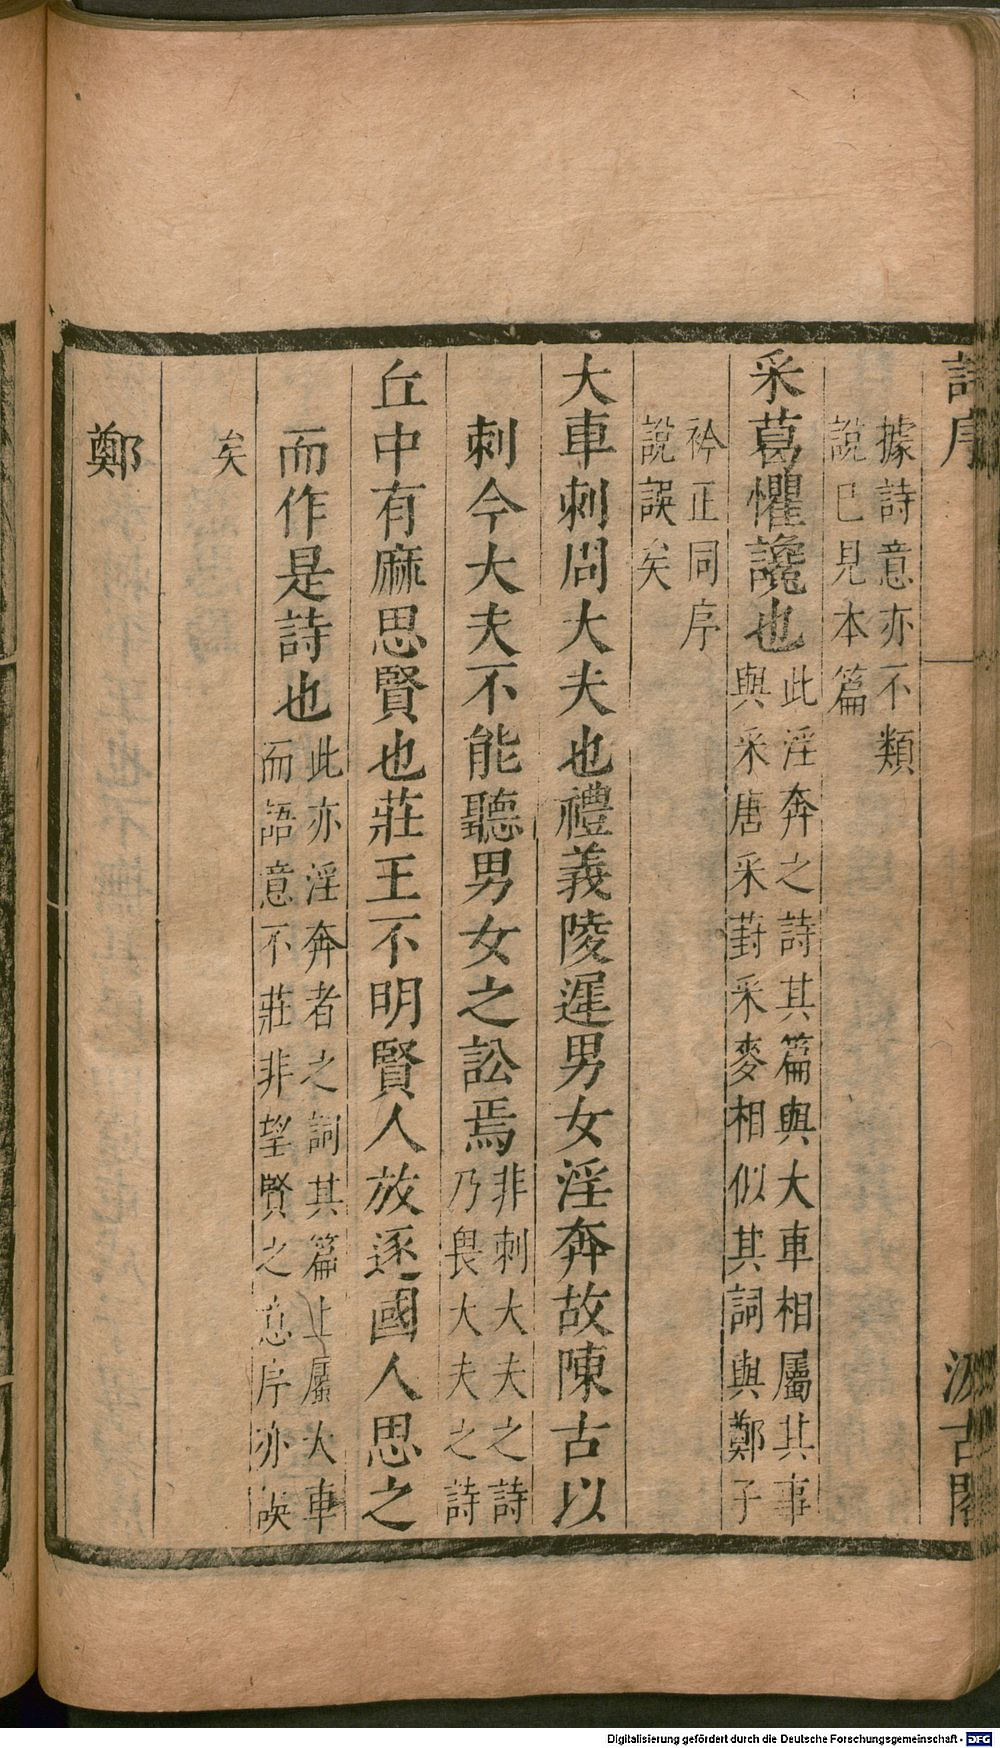 詩序
汲古閣
據詩意亦不類
說已見本篇
采葛懼讒也
此淫奔之詩其篇與大車相屬其事
與采唐采葑采麥相似其詞與鄭子
衿正同序
說誤矣
大車刺周大夫也禮義陵遲男女淫奔故陳古以
刺今大夫不能聽男女之訟焉
非刺大夫之詩
乃畏大夫之詩
丘中有麻思賢也莊王不明賢人放逐國人思之
而作是詩也
此亦淫奔者之詞其篇上屬大車
而語意不莊非望賢之意序亦誤
矣
鄭
Digitalisierung gefördert durch die Deutsche Forschungsgemeinschaft - DFG